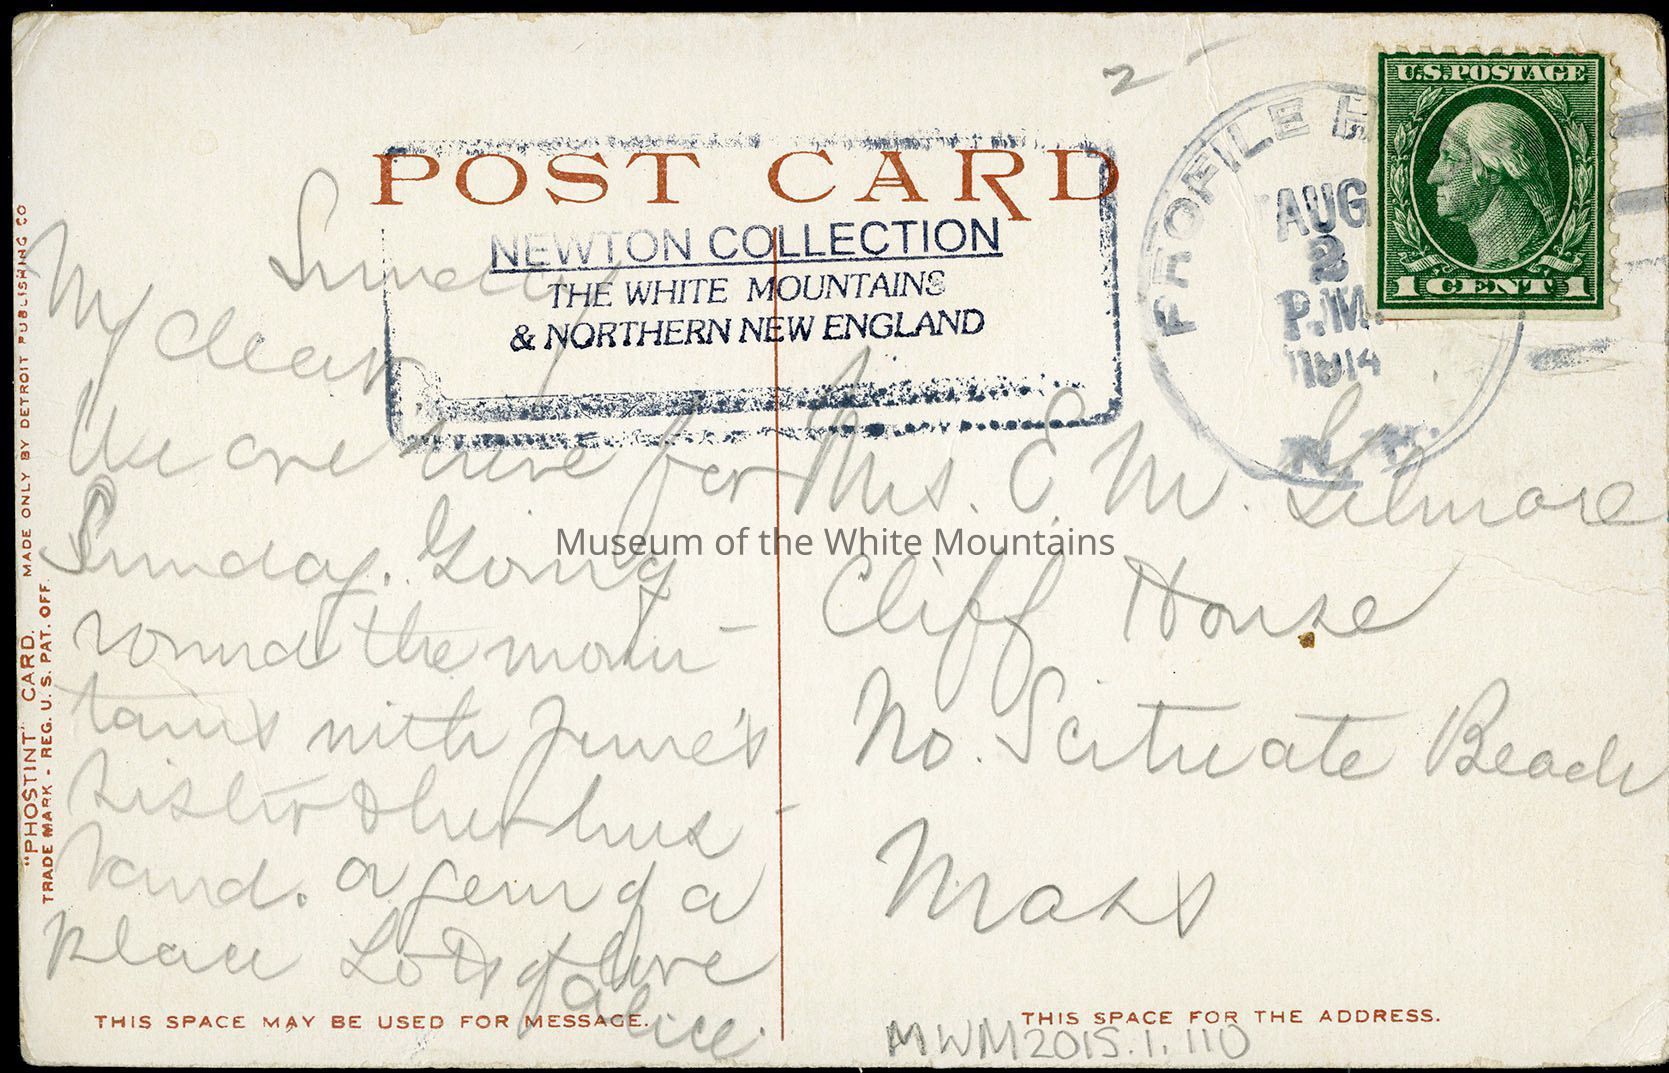 2
U.S. POSTAGE
1 CENT 1
PROFILE H
AUG
2
P.M.
1914
N.H.
POST CARD
NEWTON COLLECTION
THE WHITE MOUNTAINS
& NORTHERN NEW ENGLAND
Sunday
My dear
We are here for
Sunday. Going
round the moun-
tains with June's
sister & her hus-
band. a gem of a
place Lots of love
Alice.
Mrs. E. M. Gilmore
Cliff House
No. Scituate Beach
Mass
Museum of the White Mountains
"PHOSTINT" CARD. MADE ONLY BY DETROIT PUBLISHING CO
TRADE MARK - REG. U. S. PAT. OFF.
THIS SPACE MAY BE USED FOR MESSAGE.
THIS SPACE FOR THE ADDRESS.
MWM2015.1.110